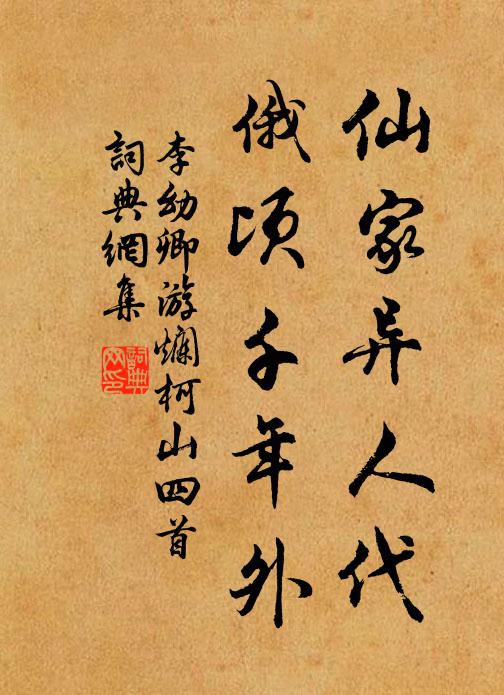 仙家异人代
俄顷千年外
李幼卿游爛柯山四首
詞典網集
詞典网印